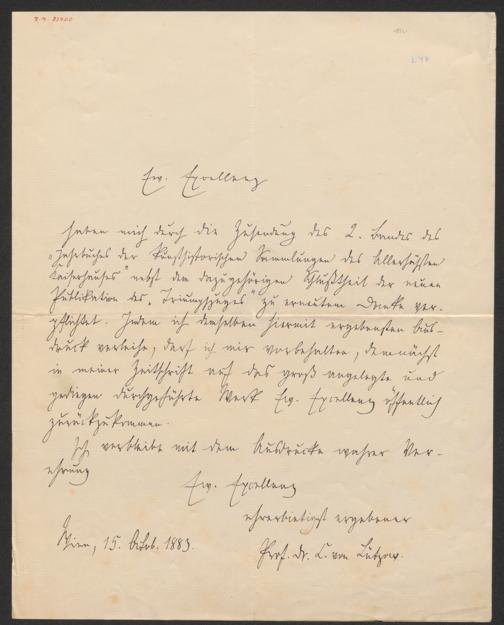 Ew. Excellenz
haben mich durch die Zusendung des 2. Bandes des
„Jahrbuches der kunsthistorischen Sammlungen des Allerhöchsten
Kaiserhauses" nebst dem dazugehörigen Schlußtheil der neuen
Publikation des „Triumphzuges" zu erneutem Danke ver-
pflichtet. Indem ich demselben hiermit ergebensten Aus-
druck verleihe, darf ich mir vorbehalten, demnächst
in meiner Zeitschrift auf das groß angelegte und
gediegen durchgeführte Werk Ew. Excellenz öffentlich
zurückzukommen.
Ich verbleibe mit dem Ausdrucke wahrer Ver-
ehrung
Ew. Excellenz
ehrerbietigst ergebener
Wien, 15. Octob. 1883.
Prof. Dr. C. von Lützow.